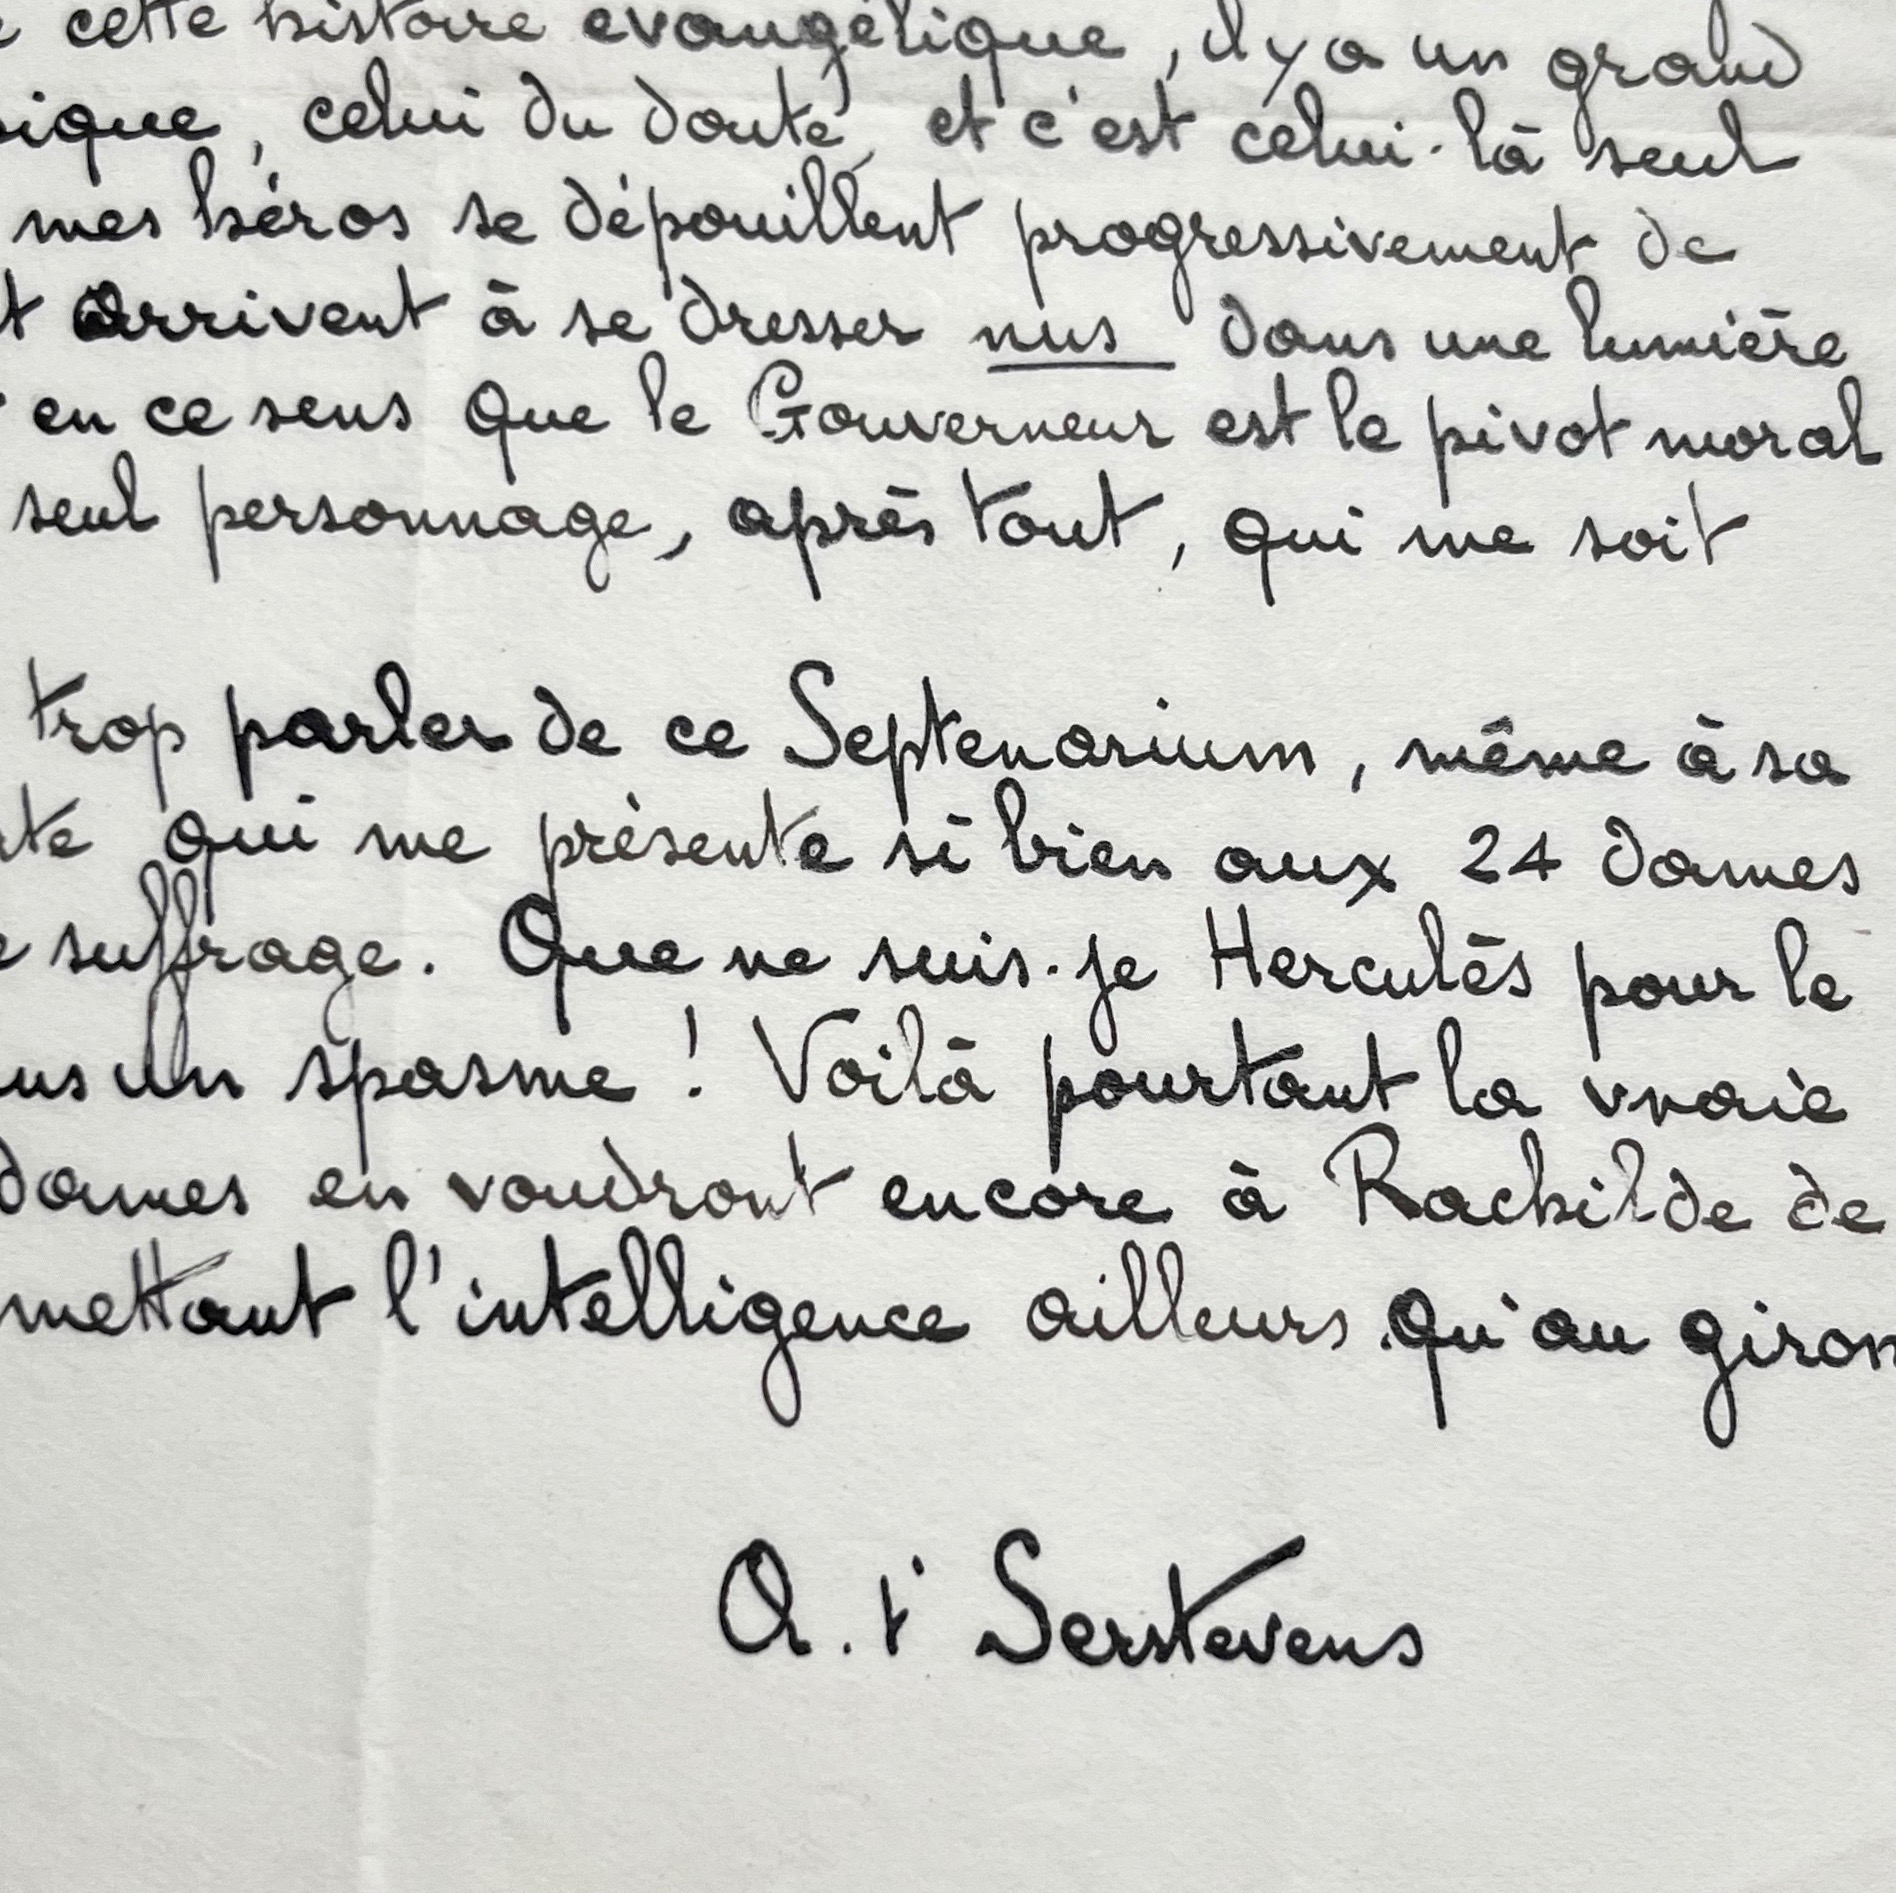 cette histoire évangélique, il y a un grand
ique, celui du doute, et c'est celui-là seul
mes héros se dépouillent progressivement de
t arrivent à se dresser nus dans une lumière
en ce sens que le Gouverneur est le pivot moral
seul personnage, après tout, qui me soit
trop parler de ce Septenarium, même à sa
te qui me présente si bien aux 24 dames
e suffrage. Que ne suis-je Herculès pour le
us un spasme ! Voilà pourtant la vraie
dames en voudront encore à Rachilde de
mettant l'intelligence ailleurs qu'au giron
A. t'Serstevens